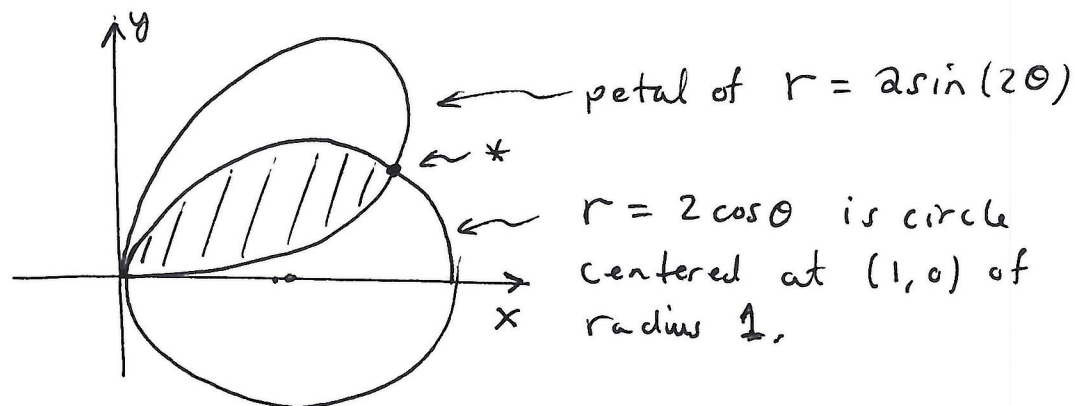 y
petal of r = 2sin(2θ)
*
r = 2 cosθ is circle
centered at (1,0) of
radius 1.
x